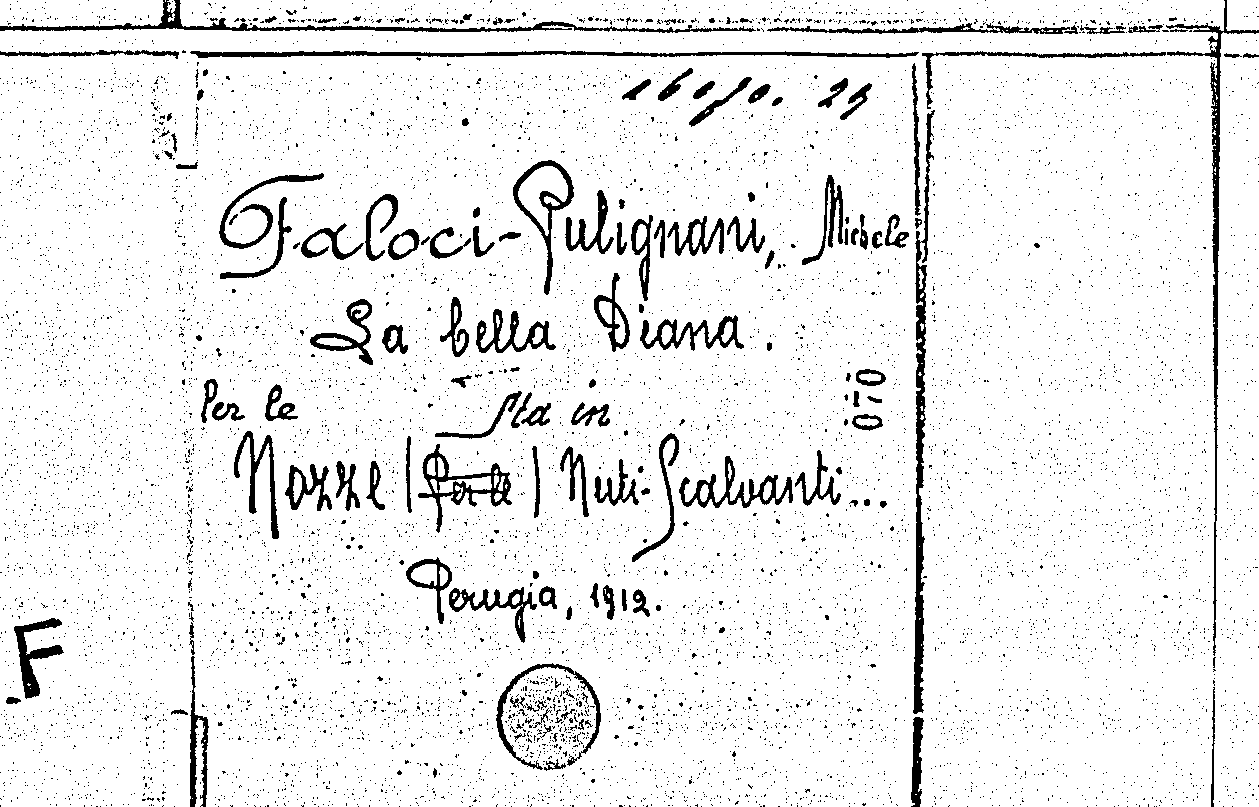 Faloci-Pulignani, Michele
La bella Diana.
Per le
Sta in
Nozze (Per le) Nuti-Scalvanti...
Perugia, 1912.
070
F